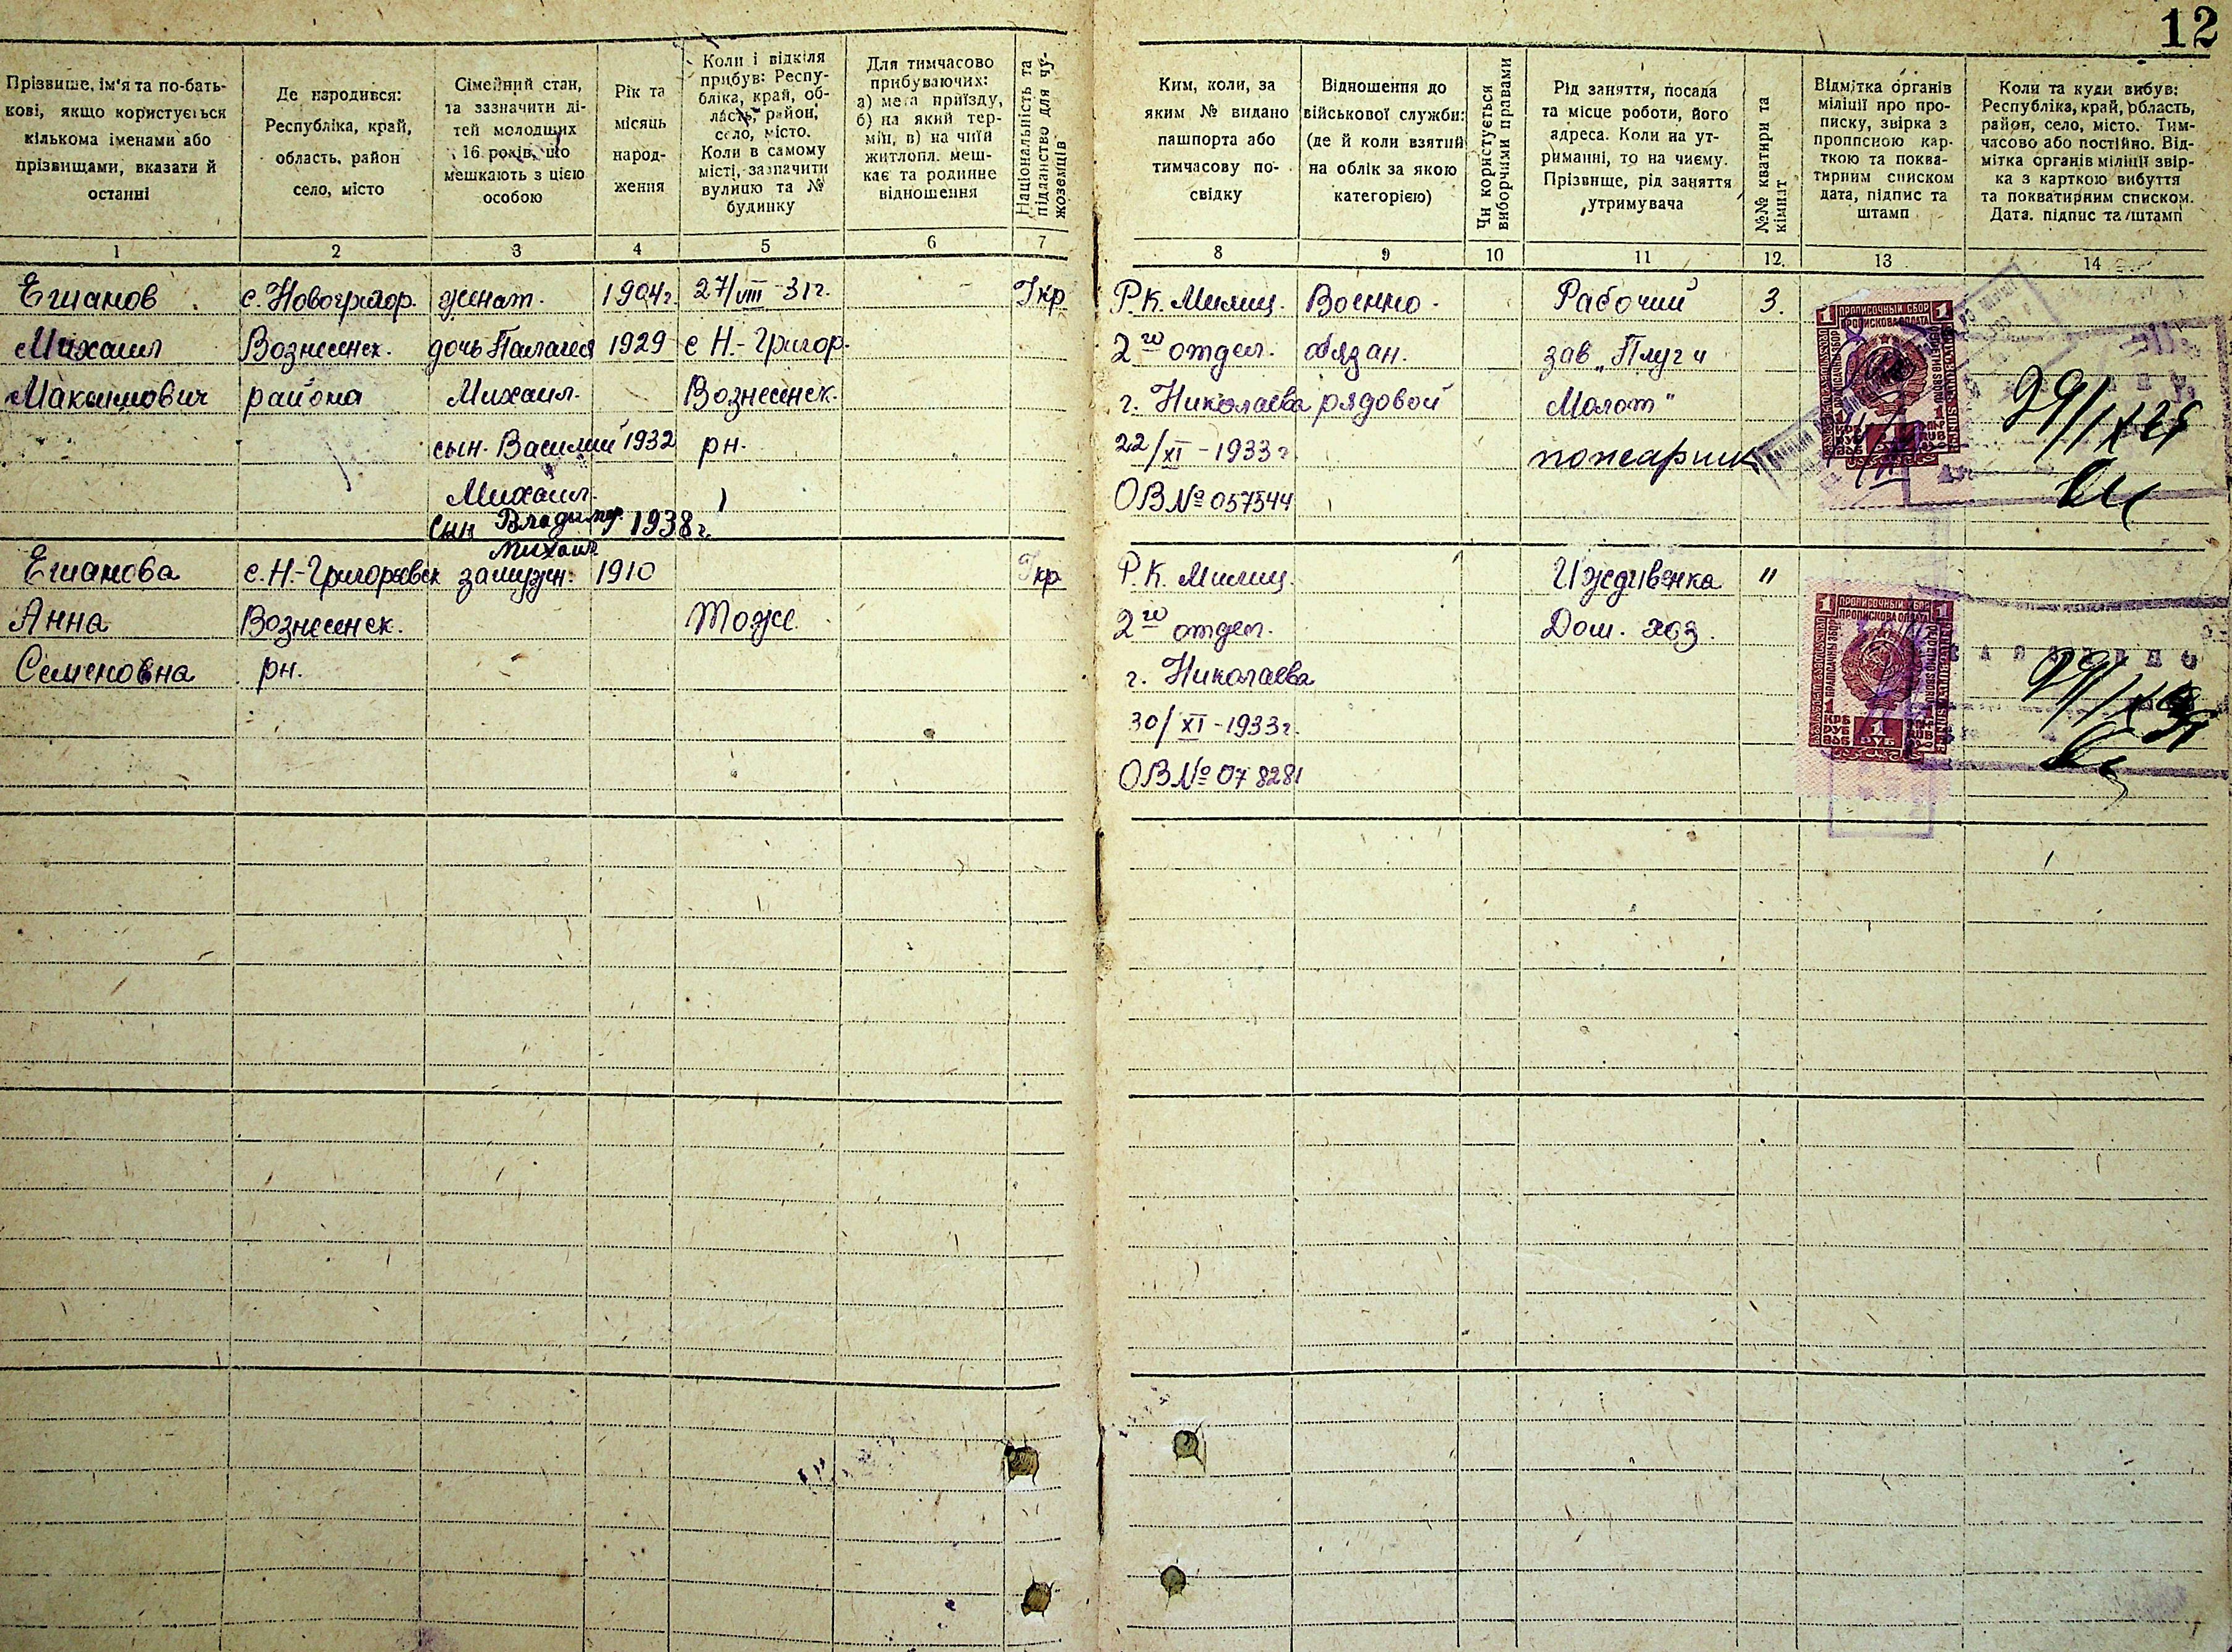 12
Прізвище, ім'я та по-бать-
кові, якщо користується
кількома іменами або
прізвищами, вказати й
останні
Де народився:
Республіка, край,
область, район
село, місто
Сімейний стан,
та зазначити ді-
тей молодших
16 років, що
мешкають з цією
особою
Рік та
місяць
народ-
ження
Коли і відкіля
прибув: Респу-
бліка, край, об-
ласть, район,
село, місто.
Коли в самому
місті, зазначити
вулицю та №
будинку
Для тимчасово
прибуваючих:
а) мета приїзду,
б) на який тер-
мін, в) на чиїй
житлопл. меш-
кає та родинне
відношення
Національність та
підданство для чу-
жоземців
Ким, коли, за
яким № видано
пашпорта або
тимчасову по-
свідку
Відношення до
військової служби:
(де й коли взятий
на облік за якою
категорією)
Чи користується
виборчими правами
Рід заняття, посада
та місце роботи, його
адреса. Коли на ут-
риманні, то на чиєму.
Прізвище, рід заняття
утримувача
№№ кватири та
кімнат
Відмітка органів
міліції про про-
писку, звірка з
прописною кар-
ткою та поква-
тирним списком
дата, підпис та
штамп
Коли та куди вибув:
Республіка, край, область,
район, село, місто. Тим-
часово або постійно. Від-
мітка органів міліції звір-
ка з карткою вибуття
та покватирним списком.
Дата, підпис та штамп
1 2 3 4 5 6 7 8 9 10 11 12. 13 14
Егианов с. Новогригор. женат. 1904г. 27/VIII-31г. Укр Р.К. Милиц. Военно- Рабочий 3.
Михаил Вознесенск. дочь Палагея 1929 с Н.-Григор. 2го отдел. обязан. зав „Плуг и
Максимович района Михаил. Вознесенск. г. Николаева рядовой Молот"
сын. Василий 1932 рн. 22/XI-1933г пожарник
Михаил. ОВ № 057544
сын Владимир 1938г.
Михаил
Егианова с. Н.-Григорьевск замужн. 1910 Укр Р.К. Милиц. Иждивенка "
Анна Вознесенск. Тоже 2го отдел. Дом. хоз.
Семеновна рн. г. Николаева
30/XI-1933г.
ОВ № 078281
1 ПРОПИСОЧНЫЙ СБОР 1
ПРОПИСКОВА ОПЛАТА
1 ПРОПИСОЧНЫЙ СБОР 1
ПРОПИСКОВА ОПЛАТА
1
КРБ
РУБ
1
РУБ